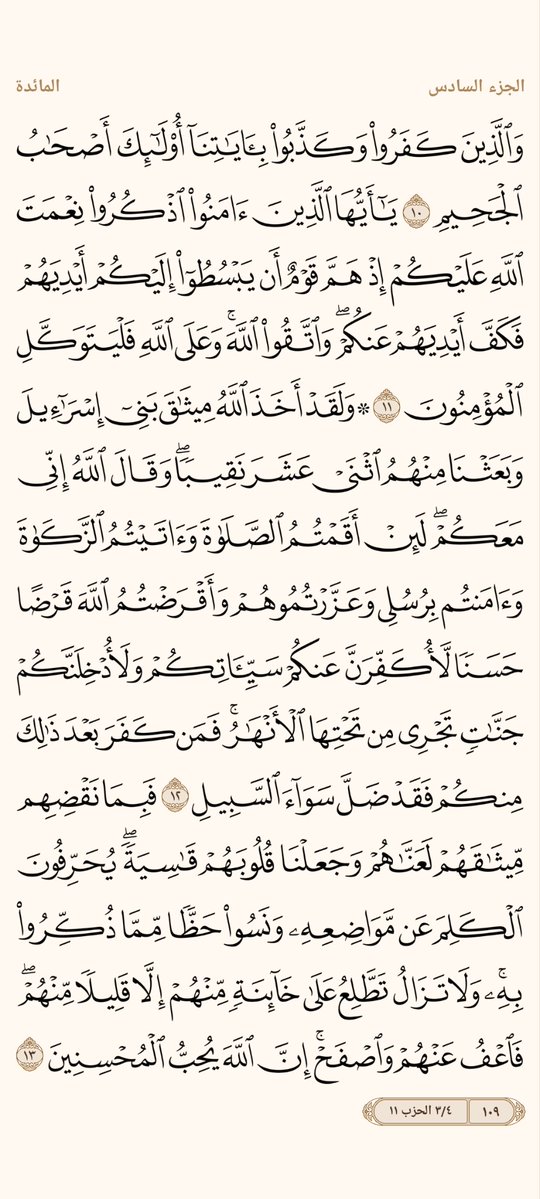 الجزء السادس المائدة
وَٱلَّذِينَ كَفَرُوا۟ وَكَذَّبُوا۟ بِـَٔايَـٰتِنَآ أُو۟لَـٰٓئِكَ أَصْحَـٰبُ
ٱلْجَحِيمِ ١٠ يَـٰٓأَيُّهَا ٱلَّذِينَ ءَامَنُوا۟ ٱذْكُرُوا۟ نِعْمَتَ
ٱللَّهِ عَلَيْكُمْ إِذْ هَمَّ قَوْمٌ أَن يَبْسُطُوٓا۟ إِلَيْكُمْ أَيْدِيَهُمْ
فَكَفَّ أَيْدِيَهُمْ عَنكُمْ ۖ وَٱتَّقُوا۟ ٱللَّهَ ۚ وَعَلَى ٱللَّهِ فَلْيَتَوَكَّلِ
ٱلْمُؤْمِنُونَ ١١ ۞ وَلَقَدْ أَخَذَ ٱللَّهُ مِيثَـٰقَ بَنِىٓ إِسْرَٰٓءِيلَ
وَبَعَثْنَا مِنْهُمُ ٱثْنَىْ عَشَرَ نَقِيبًا ۖ وَقَالَ ٱللَّهُ إِنِّى
مَعَكُمْ ۖ لَئِنْ أَقَمْتُمُ ٱلصَّلَوٰةَ وَءَاتَيْتُمُ ٱلزَّكَوٰةَ
وَءَامَنتُم بِرُسُلِى وَعَزَّرْتُمُوهُمْ وَأَقْرَضْتُمُ ٱللَّهَ قَرْضًا
حَسَنًا لَّأُكَفِّرَنَّ عَنكُمْ سَيِّـَٔاتِكُمْ وَلَأُدْخِلَنَّكُمْ
جَنَّـٰتٍ تَجْرِى مِن تَحْتِهَا ٱلْأَنْهَـٰرُ ۚ فَمَن كَفَرَ بَعْدَ ذَٰلِكَ
مِنكُمْ فَقَدْ ضَلَّ سَوَآءَ ٱلسَّبِيلِ ١٢ فَبِمَا نَقْضِهِم
مِّيثَـٰقَهُمْ لَعَنَّـٰهُمْ وَجَعَلْنَا قُلُوبَهُمْ قَـٰسِيَةً ۖ يُحَرِّفُونَ
ٱلْكَلِمَ عَن مَّوَاضِعِهِۦ ۙ وَنَسُوا۟ حَظًّا مِّمَّا ذُكِّرُوا۟
بِهِۦ ۚ وَلَا تَزَالُ تَطَّلِعُ عَلَىٰ خَآئِنَةٍ مِّنْهُمْ إِلَّا قَلِيلًا مِّنْهُمْ ۖ
فَٱعْفُ عَنْهُمْ وَٱصْفَحْ ۚ إِنَّ ٱللَّهَ يُحِبُّ ٱلْمُحْسِنِينَ ١٣
١٠٩ ٣/٤ الحزب ١١